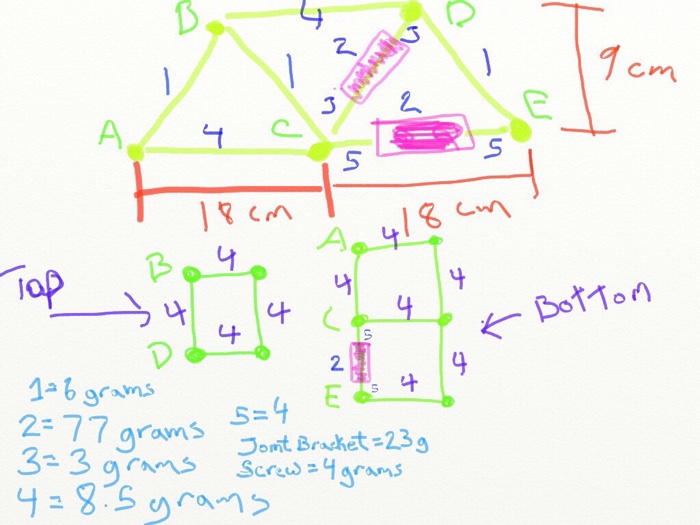 B 4 D
1 1 2 3 1 9 cm
3 2 E
A 4 C 5 5
18 cm 18 cm
Top B 4
4 4
D 4
A 4
4 4
C 4 Bottom
5
2 4
E 5 4
1=6 grams
2=77 grams
3=3 grams
4=8.5 grams
5=4
Jomt Bracket=23g
Screw=4grams